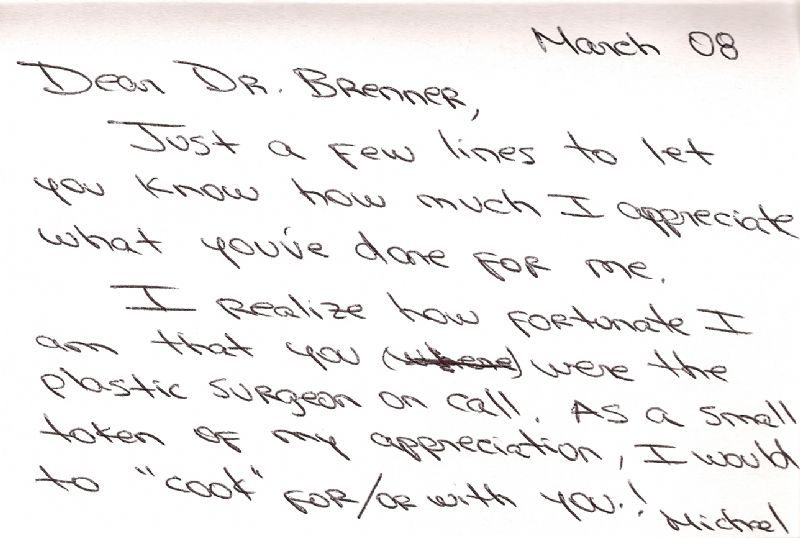 March 08
Dear DR. Brenner,
Just a few lines to let
you know how much I appreciate
what you've done for me.
I realize how fortunate I
am that you (where) were the
plastic surgeon on call. As a small
token of my appreciation, I would
to "cook" for/or with you!
Michael